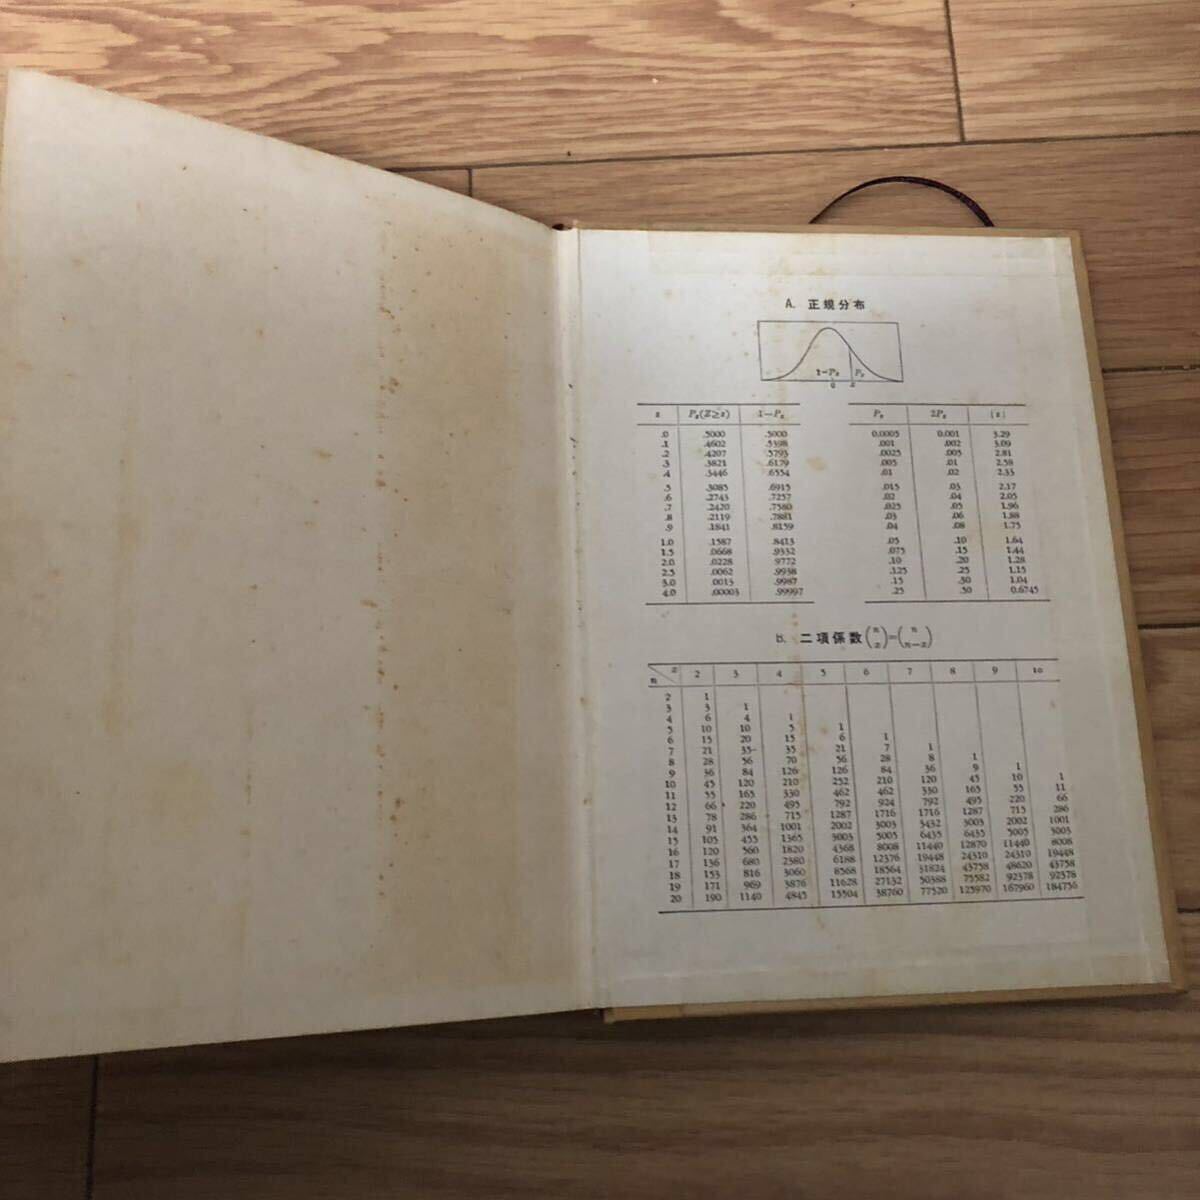 A. 正規分布
1−Pz Pz
0 z
z Pz(Z≥z) 1−Pz
.0 .5000 .5000
.1 .4602 .5398
.2 .4207 .5793
.3 .3821 .6179
.4 .3446 .6554
.5 .3085 .6915
.6 .2743 .7257
.7 .2420 .7580
.8 .2119 .7881
.9 .1841 .8159
1.0 .1587 .8413
1.5 .0668 .9332
2.0 .0228 .9772
2.5 .0062 .9938
3.0 .0013 .9987
4.0 .00003 .99997
Pz 2Pz |z|
0.0005 0.001 3.29
.001 .002 3.09
.0025 .005 2.81
.005 .01 2.58
.01 .02 2.33
.015 .03 2.17
.02 .04 2.05
.025 .05 1.96
.03 .06 1.88
.04 .08 1.75
.05 .10 1.64
.075 .15 1.44
.10 .20 1.28
.125 .25 1.15
.15 .30 1.04
.25 .50 0.6745
B. 二項係数 (n x)=(n n−x)
n x 2 3 4 5 6 7 8 9 10
2 1
3 3 1
4 6 4 1
5 10 10 5 1
6 15 20 15 6 1
7 21 35 35 21 7 1
8 28 56 70 56 28 8 1
9 36 84 126 126 84 36 9 1
10 45 120 210 252 210 120 45 10 1
11 55 165 330 462 462 330 165 55 11
12 66 220 495 792 924 792 495 220 66
13 78 286 715 1287 1716 1716 1287 715 286
14 91 364 1001 2002 3003 3432 3003 2002 1001
15 105 455 1365 3003 5005 6435 6435 5005 3003
16 120 560 1820 4368 8008 11440 12870 11440 8008
17 136 680 2380 6188 12376 19448 24310 24310 19448
18 153 816 3060 8568 18564 31824 43758 48620 43758
19 171 969 3876 11628 27132 50388 75582 92378 92378
20 190 1140 4845 15504 38760 77520 125970 167960 184756